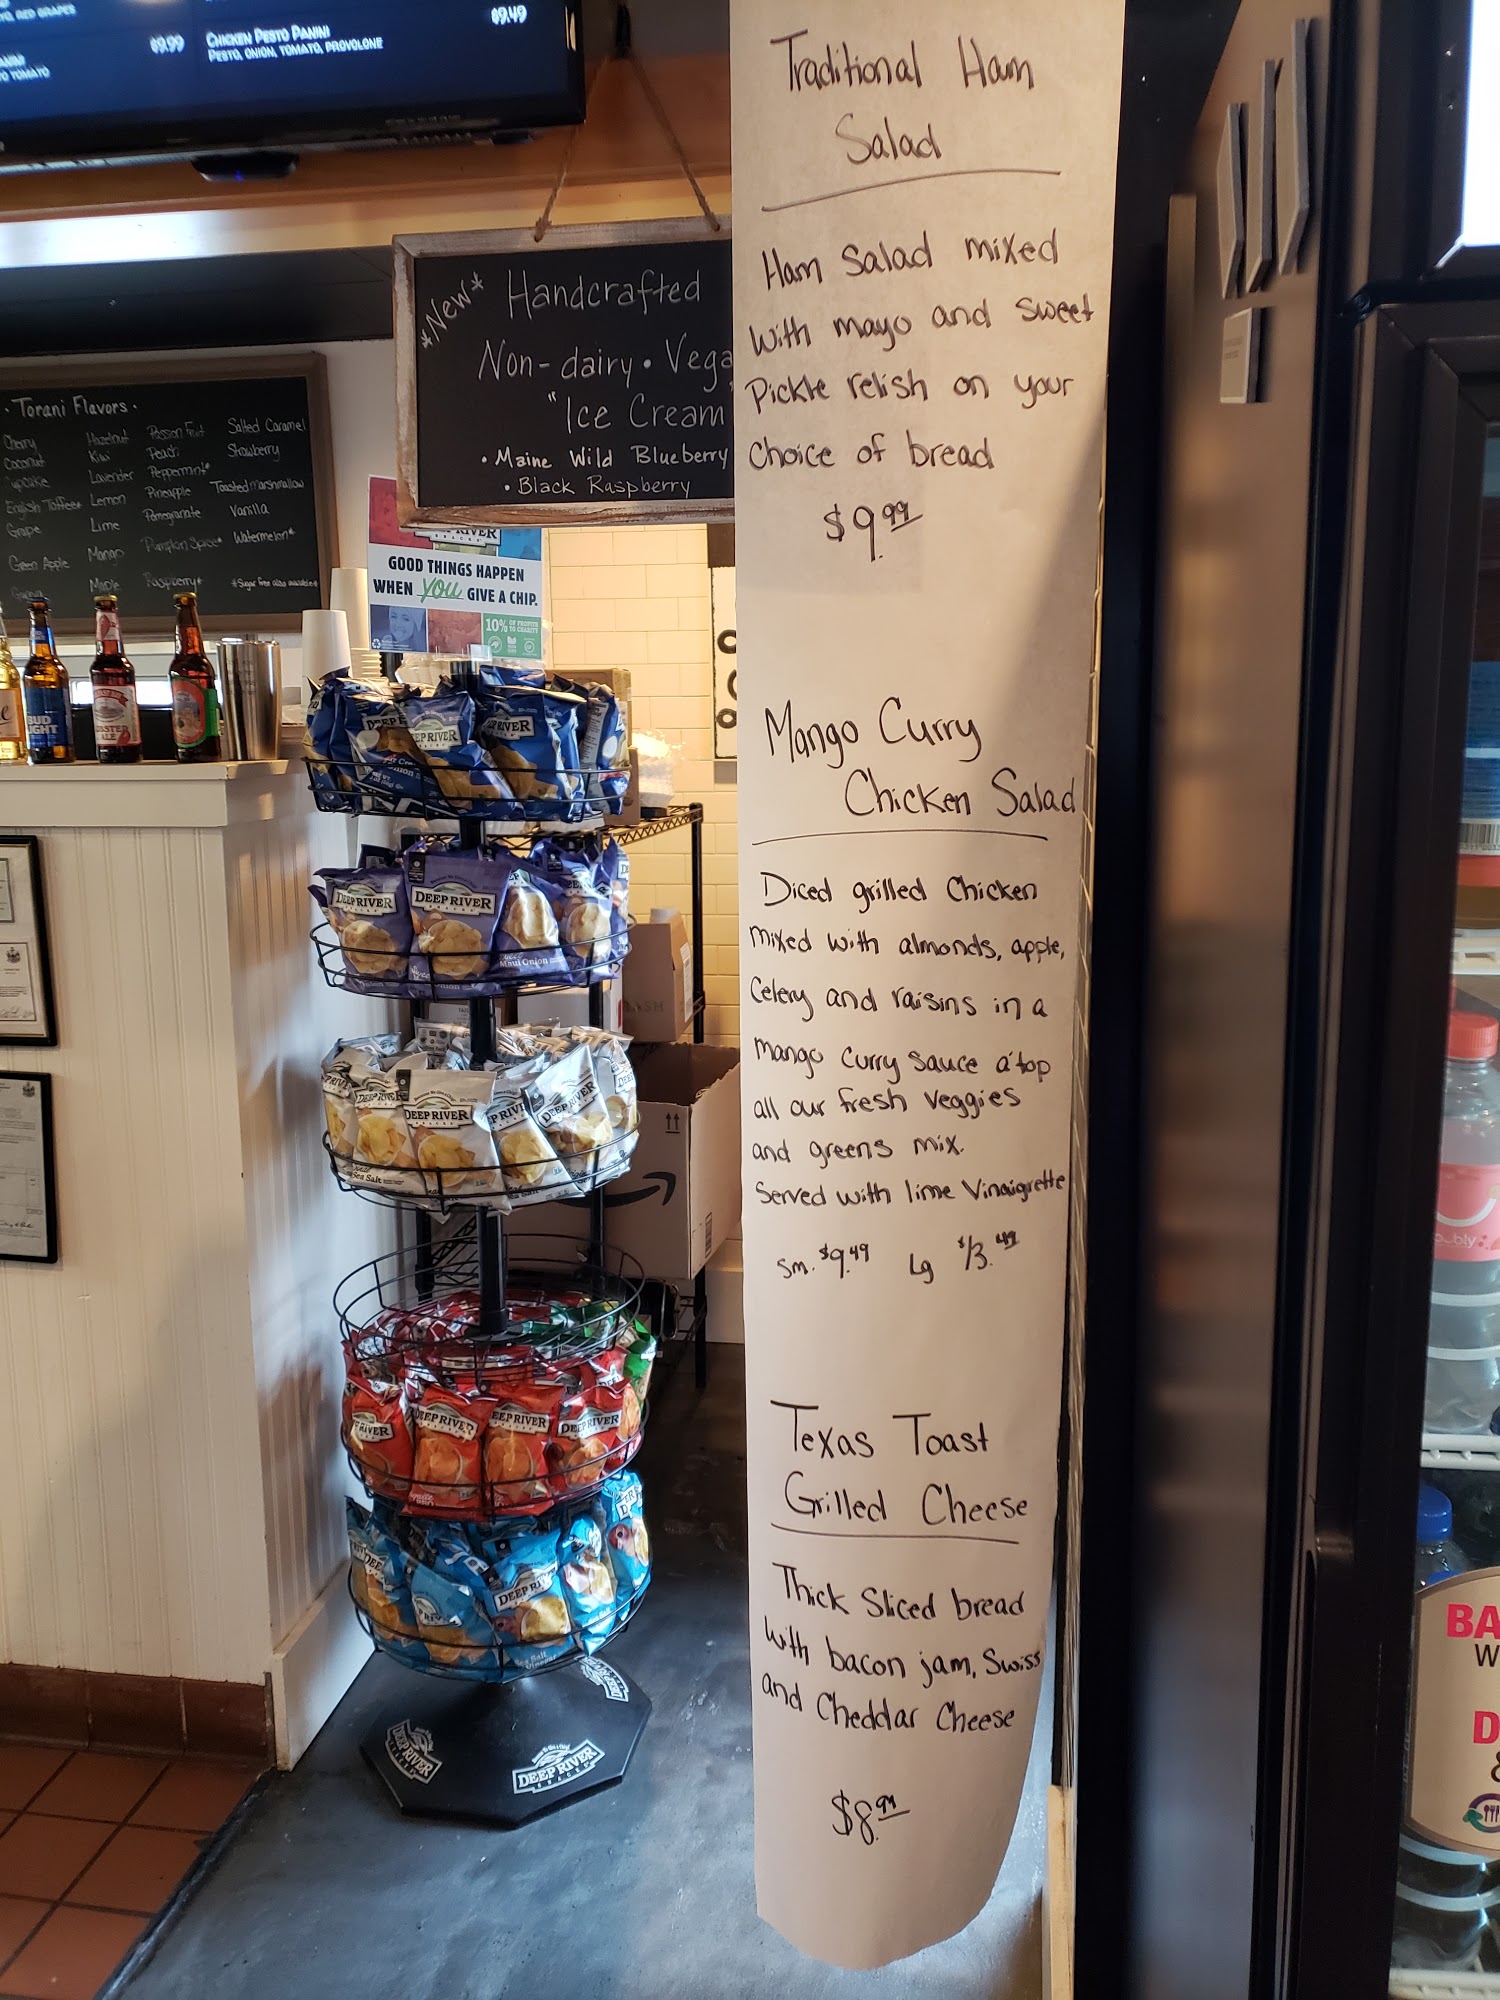 , RED GRAPES
$9.99
TO TOMATO
CHICKEN PESTO PANINI
$9.49
PESTO, ONION, TOMATO, PROVOLONE
*New*
Handcrafted
Non-dairy • Vega
"Ice Cream
• Maine Wild Blueberry
• Black Raspberry
• Torani Flavors •
Cherry
Coconut
Cupcake
English Toffee*
Grape
Green Apple
Hazelnut
Kiwi
Lavender
Lemon
Lime
Mango
Maple
Passion Fruit
Peach
Peppermint*
Pineapple
Pomegranate
Pumpkin Spice*
Raspberry*
Salted Caramel
Strawberry
Toasted marshmallow
Vanilla
Watermelon*
*Sugar free also available*
GOOD THINGS HAPPEN
WHEN you GIVE A CHIP.
10% OF PROFITS
TO CHARITY
BUD
LIGHT
DEEP RIVER
DEEP RIVER
DEEP RIVER
Maui Onion
DEEP RIVER
DEEP RIVER
Sea Salt
DEEP RIVER
DEEP RIVER
DEEP RIVER
DEEP RIVER
SNACKS
DEEP RIVER
SNACKS
Traditional Ham
Salad
Ham Salad mixed
with mayo and sweet
Pickle relish on your
choice of bread
$9.99
Mango Curry
Chicken Salad
Diced grilled Chicken
mixed with almonds, apple,
Celery and raisins in a
mango curry sauce a'top
all our fresh veggies
and greens mix.
Served with lime Vinaigrette
Sm. $9.49 Lg $13.49
Texas Toast
Grilled Cheese
Thick Sliced bread
with bacon jam, Swiss
and Cheddar Cheese
$8.99
bubly
BA
W
D
&